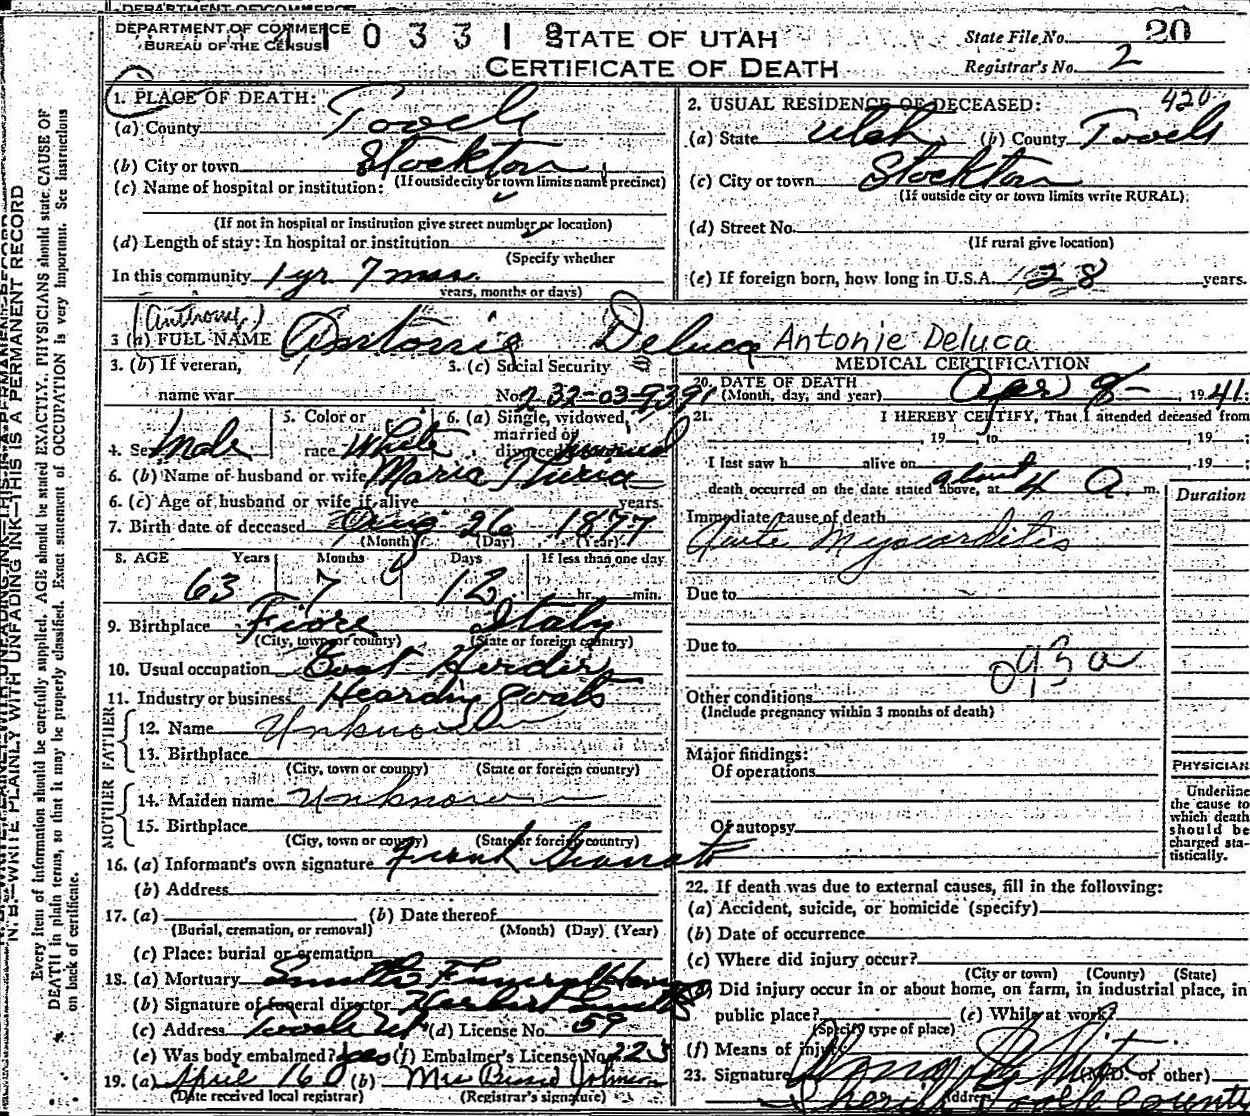 DEPARTMENT OF COMMERCE
DEPARTMENT OF COMMERCE
BUREAU OF THE CENSUS
STATE OF UTAH
CERTIFICATE OF DEATH
State File No. 20
Registrar's No. 2
1. PLACE OF DEATH:
(a) County Tooele
(b) City or town Stockton
(If outside city or town limits name precinct)
(c) Name of hospital or institution:
(If not in hospital or institution give street number or location)
(d) Length of stay: In hospital or institution
(Specify whether
In this community 1 yr. 7 mos.
years, months or days)
2. USUAL RESIDENCE OF DECEASED: 420
(a) State Utah (b) County Tooele
(c) City or town Stockton
(If outside city or town limits write RURAL)
(d) Street No.
(If rural give location)
(e) If foreign born, how long in U.S.A. 28 years.
(Anthony)
3 (a) FULL NAME Antonie Deluca Antonie Deluca
3. (b) If veteran,
name war
3. (c) Social Security
No. 232-03-9391
4. Sex Male
5. Color or
race White
6. (a) Single, widowed,
married or
divorced Married
6. (b) Name of husband or wife Maria
6. (c) Age of husband or wife if alive years.
7. Birth date of deceased Aug 26 1877
(Month) (Day) (Year)
8. AGE Years Months Days If less than one day
63 7 12 hr. min.
9. Birthplace Fiore Italy
(City, town or county) (State or foreign country)
10. Usual occupation Goat Herder
11. Industry or business Hearding goats
FATHER
12. Name Unknown
13. Birthplace
(City, town or county) (State or foreign country)
MOTHER
14. Maiden name Unknown
15. Birthplace
(City, town or county) (State or foreign country)
16. (a) Informant's own signature Frank
(b) Address
17. (a) (b) Date thereof
(Burial, cremation, or removal) (Month) (Day) (Year)
(c) Place: burial or cremation
18. (a) Mortuary Smith Funeral Home
(b) Signature of funeral director Herbert Smith
(c) Address Tooele Ut (d) License No. 59
(e) Was body embalmed? yes (f) Embalmer's License No. 223
19. (a) April 16 (b) Mrs Johnson
(Date received local registrar) (Registrar's signature)
MEDICAL CERTIFICATION
20. DATE OF DEATH
(Month, day, and year) Apr 8- 1941
21. I HEREBY CERTIFY, That I attended deceased from
, 19 , to , 19 ;
I last saw h alive on , 19 ;
death occurred on the date stated above, at about 4 A. m.
Duration
Immediate cause of death
Acute Myocarditis
Due to
Due to
093a
Other conditions
(Include pregnancy within 3 months of death)
Major findings:
Of operations
Of autopsy
PHYSICIAN
Underline
the cause to
which death
should be
charged sta-
tistically.
22. If death was due to external causes, fill in the following:
(a) Accident, suicide, or homicide (specify)
(b) Date of occurrence
(c) Where did injury occur?
(City or town) (County) (State)
(d) Did injury occur in or about home, on farm, in industrial place, in
public place? (e) While at work?
(Specify type of place)
(f) Means of injury
23. Signature (M.D. or other)
Address Sheriff Tooele County
N. B.—WRITE PLAINLY WITH UNFADING INK—THIS IS A PERMANENT RECORD
Every item of information should be carefully supplied. AGE should be stated EXACTLY. PHYSICIANS should state CAUSE OF
DEATH in plain terms, so that it may be properly classified. Exact statement of OCCUPATION is very important. See instructions
on back of certificate.